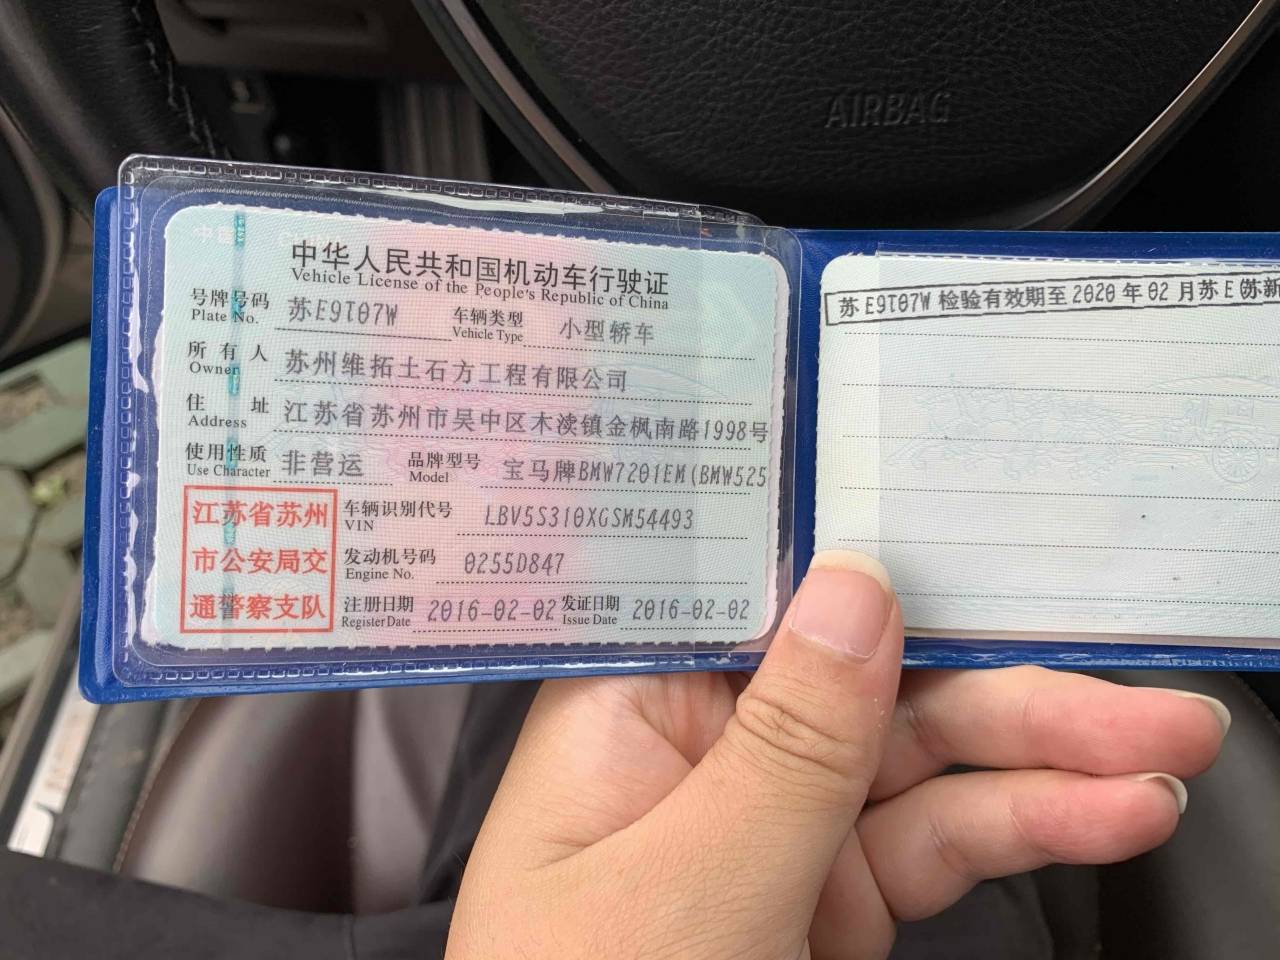 AIRBAG
中华人民共和国机动车行驶证
Vehicle License of the People's Republic of China
号牌号码 苏E9T07W 车辆类型 小型轿车
Plate No. Vehicle Type
所有人 苏州维拓土石方工程有限公司
Owner
住址 江苏省苏州市吴中区木渎镇金枫南路1998号
Address
使用性质 非营运 品牌型号 宝马牌BMW7201EM(BMW525
Use Character Model
江苏省苏州
市公安局交
通警察支队
车辆识别代号 LBV5S310XGSM54493
VIN
发动机号码 0255D847
Engine No.
注册日期 2016-02-02 发证日期 2016-02-02
Register Date Issue Date
苏E9T07W 检验有效期至2020年02月苏E(苏新